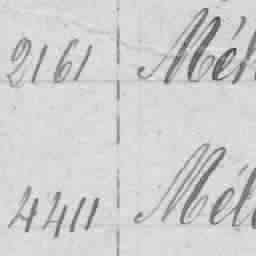 2161 Mér
4411 Mél